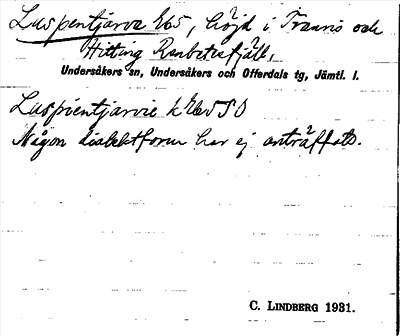 Luspentjärve 765, höjd i Tranris och
Hitting Renbetesfjäll,
Undersåkers sn, Undersåkers och Offerdals tg, Jämtl. l.
Luspientjarvie k 76v SO
Någon dialektform har ej anträffats.
C. LINDBERG 1931.